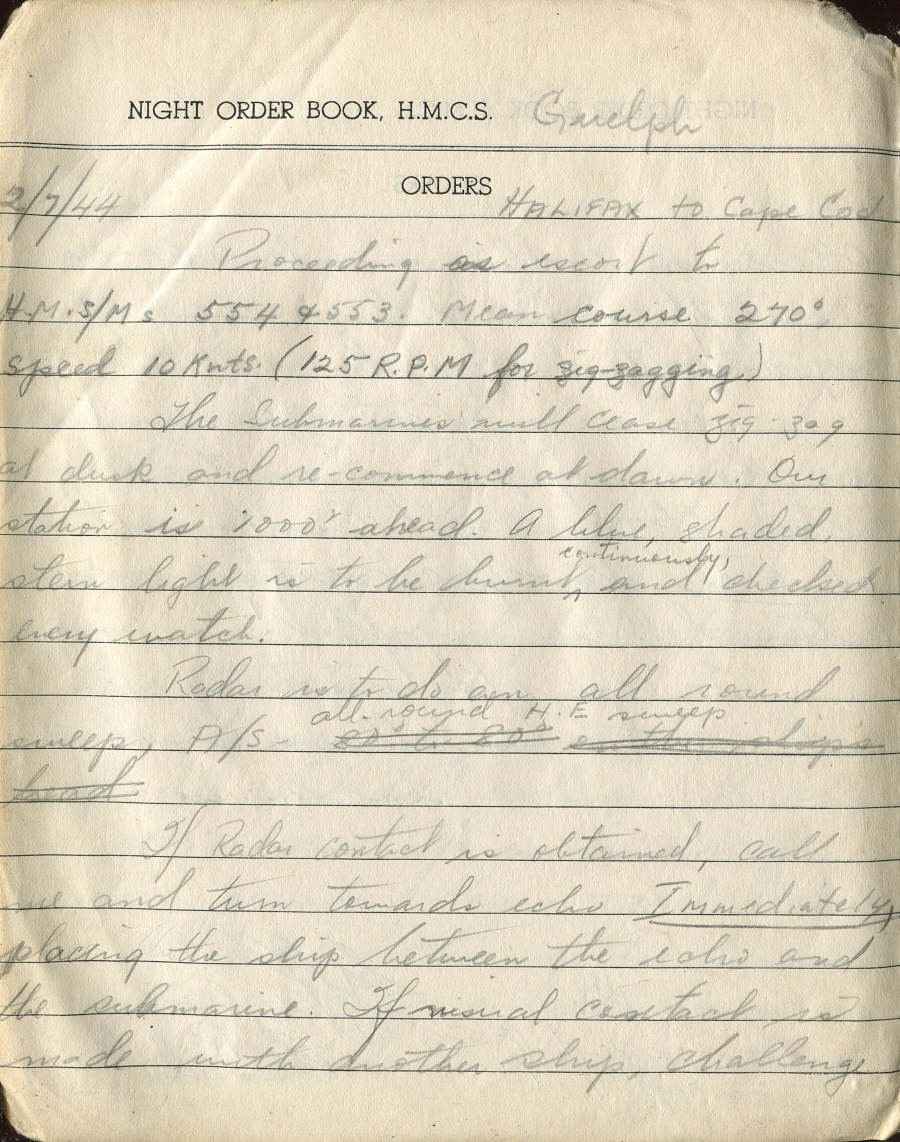 NIGHT ORDER BOOK, H.M.C.S. Guelph
ORDERS
2/7/44 HALIFAX to Cape Cod
Proceeding as escort to
H.M.S/Ms 554 & 553. Mean course 270°
speed 10 Knts. (125 R.P.M for zig-zagging)
The Submarines will cease zig-zag
at dusk and re-commence at dawn. Our
station is 1000ˣ ahead. A blue, shaded,
stern light is to be burnt continuously, and checked
every watch.
Radar is to do an all round
all-round H.E sweep
sweep, A/S - 80° to 80° on the ship's
head
If Radar contact is obtained, call
me and turn towards echo Immediately,
placing the ship between the echo and
the submarine. If visual contact is
made with another ship, challenge